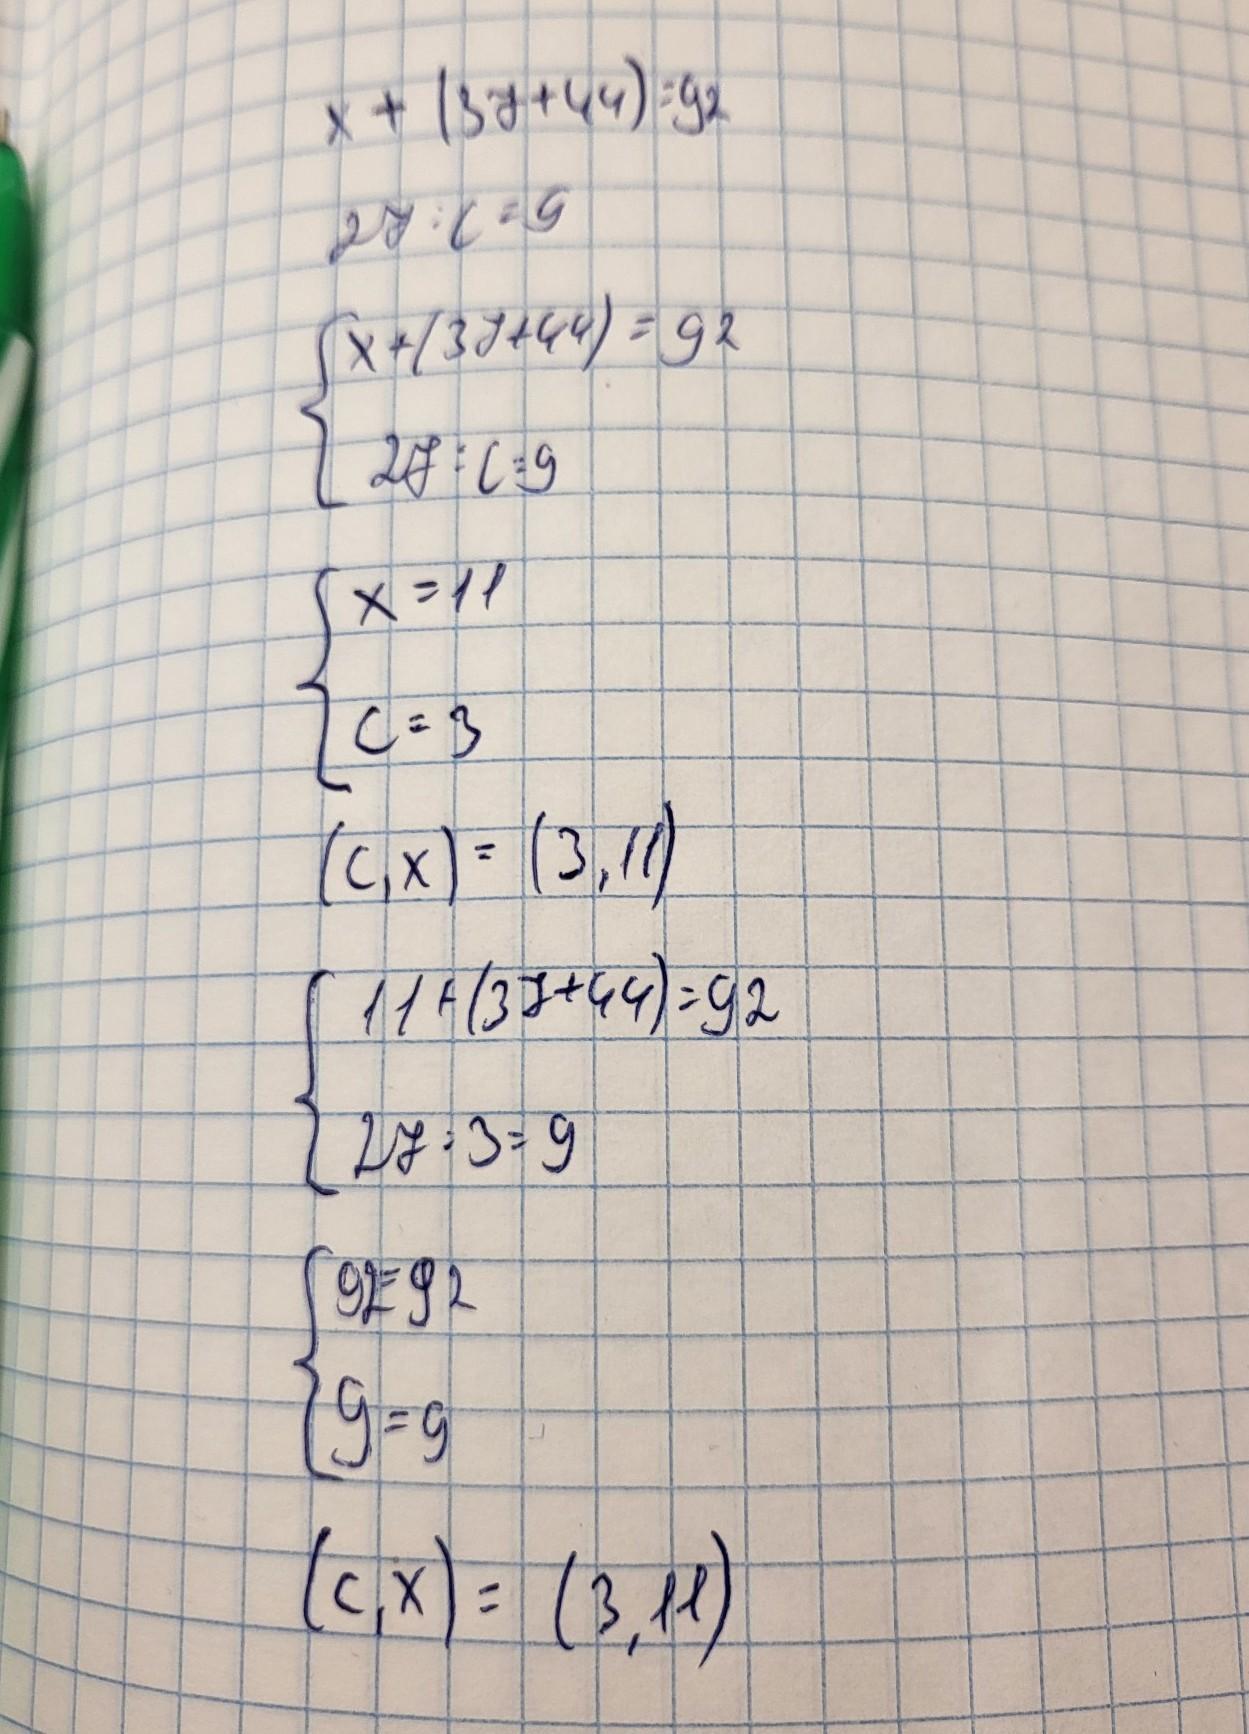 x + (37+44)=92
27:c=9
x+(37+44)=92
27:c=9
x=11
c=3
(c,x)=(3,11)
11+(37+44)=92
27:3=9
92=92
9=9
(c,x)=(3,11)